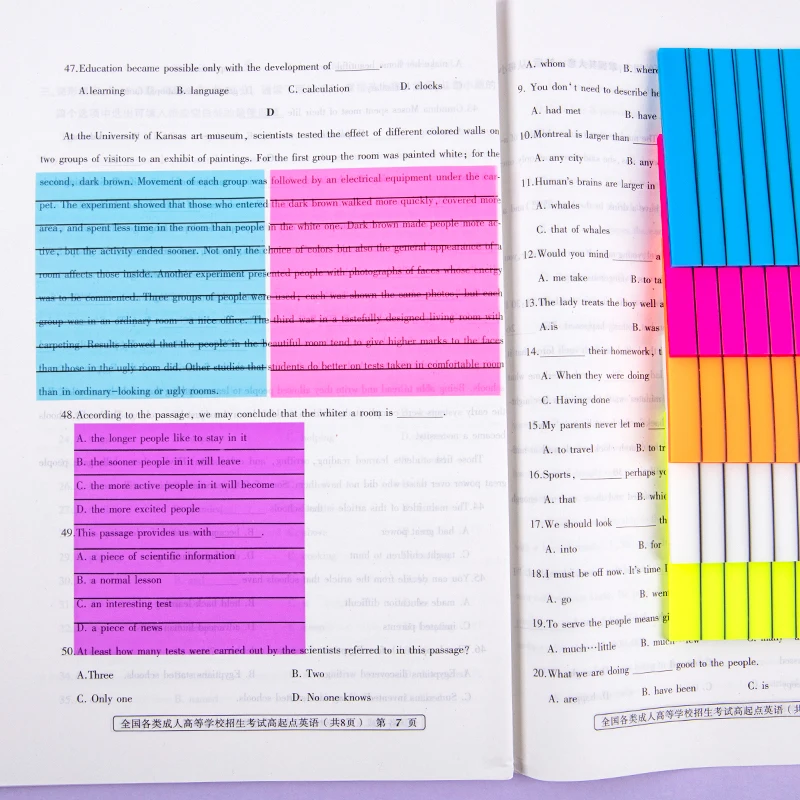 47.Education became possible only with the development of ________.
A.learning B. language C. calculation D. clocks
D
At the University of Kansas art museum, scientists tested the effect of different colored walls on
two groups of visitors to an exhibit of paintings. For the first group the room was painted white; for the
second, dark brown. Movement of each group was followed by an electrical equipment under the car-
pet. The experiment showed that those who entered the dark brown walked more quickly, covered more
area, and spent less time in the room than people in the white one. Dark brown made people more ac-
tive, but the activity ended sooner. Not only the choice of colors but also the general appearance of a
room affects those inside. Another experiment presented people with photographs of faces whose energy
was to be commented. Three groups of people were used; each was shown the same photos, but each
group was in an ordinary room—a nice office. The third was in a tastefully designed living room with
carpeting. Results showed that the people in the beautiful room tend to give higher marks to the faces
than those in the ugly room did. Other studies that students do better on tests taken in comfortable room
than in ordinary-looking or ugly rooms.
48.According to the passage, we may conclude that the whiter a room is ________.
A. the longer people like to stay in it
B. the sooner people in it will leave
C. the more active people in it will become
D. the more excited people
49.This passage provides us with ________.
A. a piece of scientific information
B. a normal lesson
C. an interesting test
D. a piece of news
50.At least how many tests were carried out by the scientists referred to in this passage?
A.Three B. Two
C. Only one D. No one knows
全国各类成人高等学校招生考试高起点英语（共8页） 第 7 页
A. whom B. where
9. You don't need to describe he
A. had met B. have
10.Montreal is larger than
A. any city B. any
11.Human's brains are larger in
A. whales
C. that of whales
12.Would you mind ________ a
A. me take B. to ta
13.The lady treats the boy well a
A.is B. was
14.________ their homework, t
A. When they were doing
C. Having done
15.My parents never let me
A. to travel B. to tr
16.Sports, ________ perhaps yo
A. that B. whic
17.We should look ________ th
A. into B. for
18.I must be off now. It's time I
A. go B. wen
19.To serve the people means gi
A. much…little B. much few
20.What we are doing ________ good to the people.
A. are B. have been C. is
全国各类成人高等学校招生考试高起点英语（共